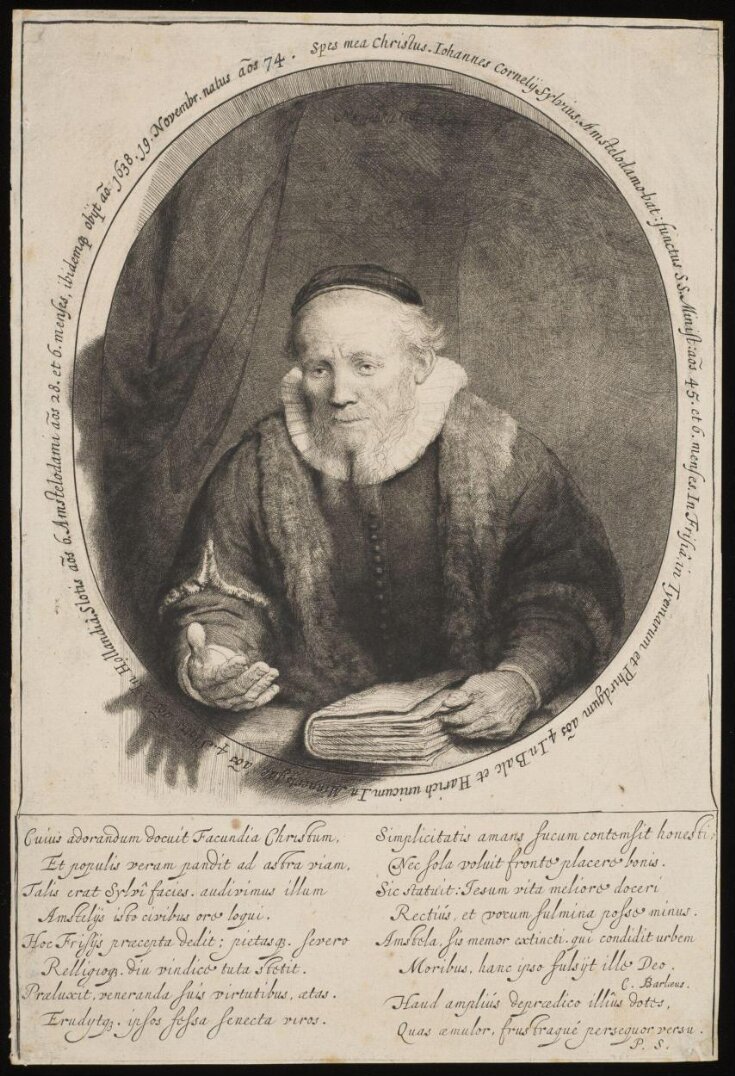 Spes mea Christus. Iohannes Cornelij Sylvius, Amstelodamo-bat: functus S.S. Minist: aõs 45. et 6. menses. In Frisiâ, in Tyemarum et Phirdgum aõs 4. In Balc et Harich unicum. In Minnertsgae aõs 4. Slotis aõs 6. Amstelodami aõs 28. et 6. menses, ibidemq obijt aõ. 1638. 19. Novembr. natus aõs 74.
Cuius adorandum docuit Facundia Christum,
Et populis veram pandit ad astra viam,
Talis erat Sylvî facies. audivimus illum
Amstelijs isto civibus ore loqui.
Hoc Frisijs præcepta dedit; pietasq. severo
Relligioq. diu vindice tuta stetit.
Præluxit, veneranda suis virtutibus, ætas.
Erudytq. ipsos fessa senecta viros.
Simplicitatis amans fucum contemsit honesti,
Nec sola voluit fronte placere bonis.
Sic statuit: Iesum vita meliore doceri
Rectiùs, et vocum fulmina posse minus.
Amstela, sis memor extincti qui condidit urbem
Moribus, hanc ipso fulsijt ille Deo.
C. Barlæus.
Haud ampliùs deprædico illîus dotes,
Quas æmulor, frustraque persequor versu.
P. S.